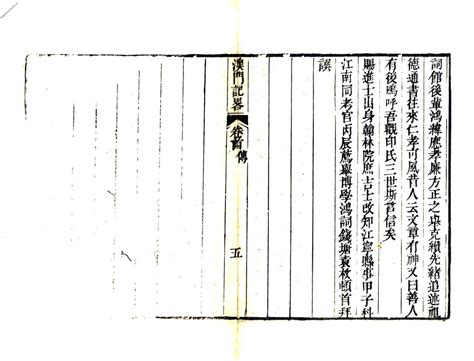 詞館後輩鴻緯應孝廉方正之舉克纘先緒追述祖
德通書往來仁孝可風昔人云文章有神又曰善人
有後嗚呼吾觀印氏三世斯言信矣
賜進士出身翰林院庶吉士改知江寧縣事甲子科
江南同考官丙辰薦舉博學鴻詞錢塘袁枚頓首拜
譔
澳門記畧
卷首 傳
五